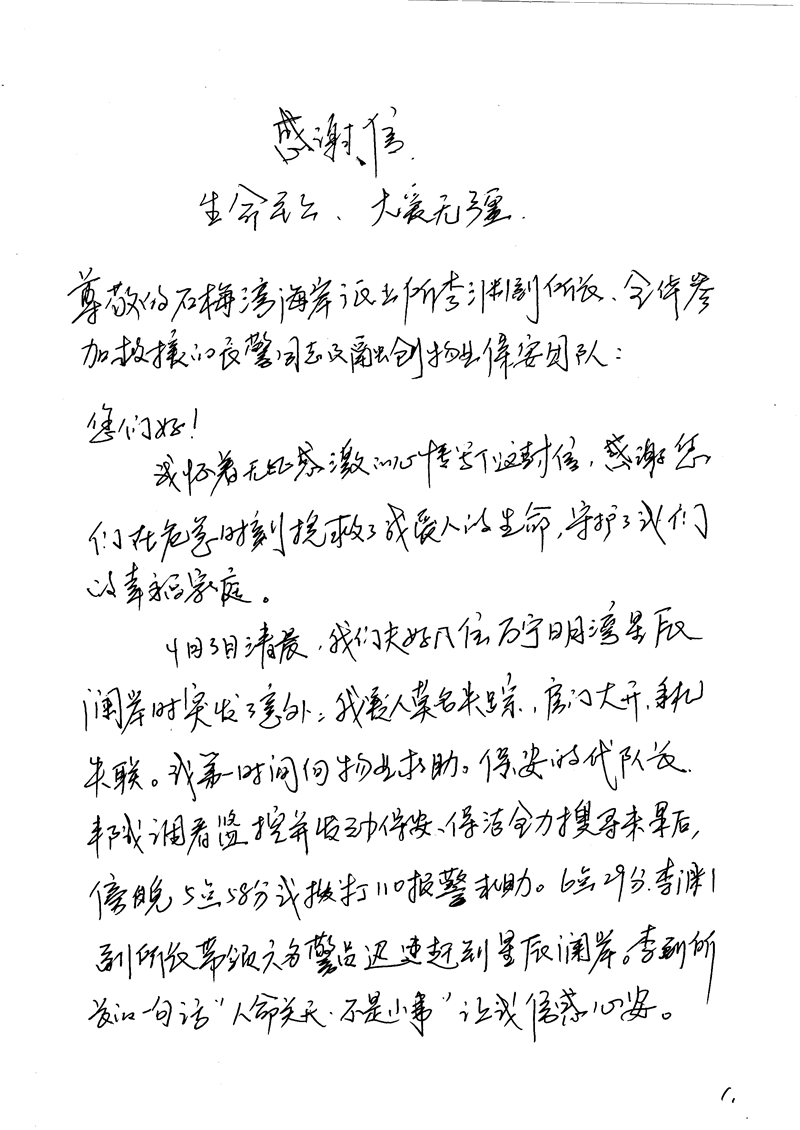 感谢信
生命至上、大爱无疆.
尊敬的石梅湾海岸派出所李渊副所长、全体参
加救援的民警同志及融创物业保安团队：
您们好！
我怀着无比感激的心情写下这封信，感谢您
们在危急时刻挽救了我爱人的生命，守护了我们
的幸福家庭。
4月3日清晨，我们夫妇入住万宁日月湾星辰
澜岸时突发意外：我爱人莫名失踪，房门大开，手机
失联。我第一时间向物业求助。保安的代队长
帮我调看监控并发动保安、保洁全力搜寻未果后，
傍晚5点58分我拨打110报警求助。6点29分，李渊
副所长带领六名警员迅速赶到星辰澜岸。李副所
长的一句话“人命关天，不是小事”让我倍感心安。
1.